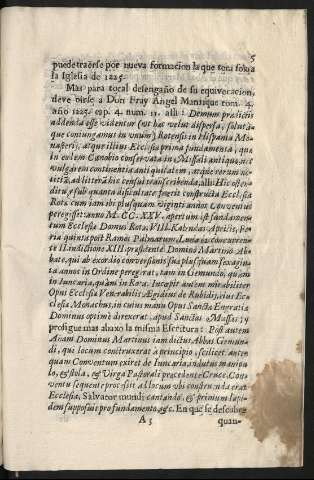 5
puede traerse por nueva formacion la que se refiere a
la Iglesia de 1225.
Mas para total desengaño de su equivocacion,
deve oirse à Don Fray Angel Manrique tom. 4.
año 1225. cap. 4. num. 11. alli: Demum prædictis
addenda esse videntur
que coniungamus in vnum) Rotensis in Hispania Mo-
nasterij, atque illius Ecclesia prima fundamenta, qua
in eodem Canonio conservata in Missali antiquo, nec
vulgari continentia antiquitatem, atque rerum no-
titia, ad litteram hic censui transcribenda, alli: Hic osten-
ditur sub quanta dificultate fuerit constructa Eccles-
ia Rota cum iam ibi plusquam viginti annos Conventus
peregisset: anno M.CC.XXV. apertum est fundamen-
tum Ecclesiæ Domus Rota, VIII. Kalendas Aprilis, Fe-
ria quinta post Ramos Palmarum, Luna concurren-
te II. indictione XIII. præsidente Domino Martino Ab-
bate, qui ab exordio conversionis suæ plusquam sexagin-
ta annos in Ordine peregerat, tam in Gemundo, quàm
in Iuncaria, quàm in Rota. Incæpit autem mirabiliter
Opus Ecclesiæ Venerabilis Ægidius de Rubidi, eius Ec-
clesiæ Monachus, in cuius manu Opus Sancta Engratia
Dominus optimè direxerat, apud Sanctas Massas: y
prosigue mas abaxo la misma Escritura: Post autem
Anam Dominus Martinus iam dictus Abbas Gemun-
di, qui locum contruxerat à principio, scilicet ante-
quam Conventum exiret de Iuncaria, indutus manipu-
lo, & stola, & Virga Pastorali præcedente Cruce, Con-
ventu sequente processit ad locum vbi construenda erat
Ecclesia, Salvator mundi cantando, & primum lapi-
dem supposuit pro fundamento, &c. En que se descubre
A 3
quan-